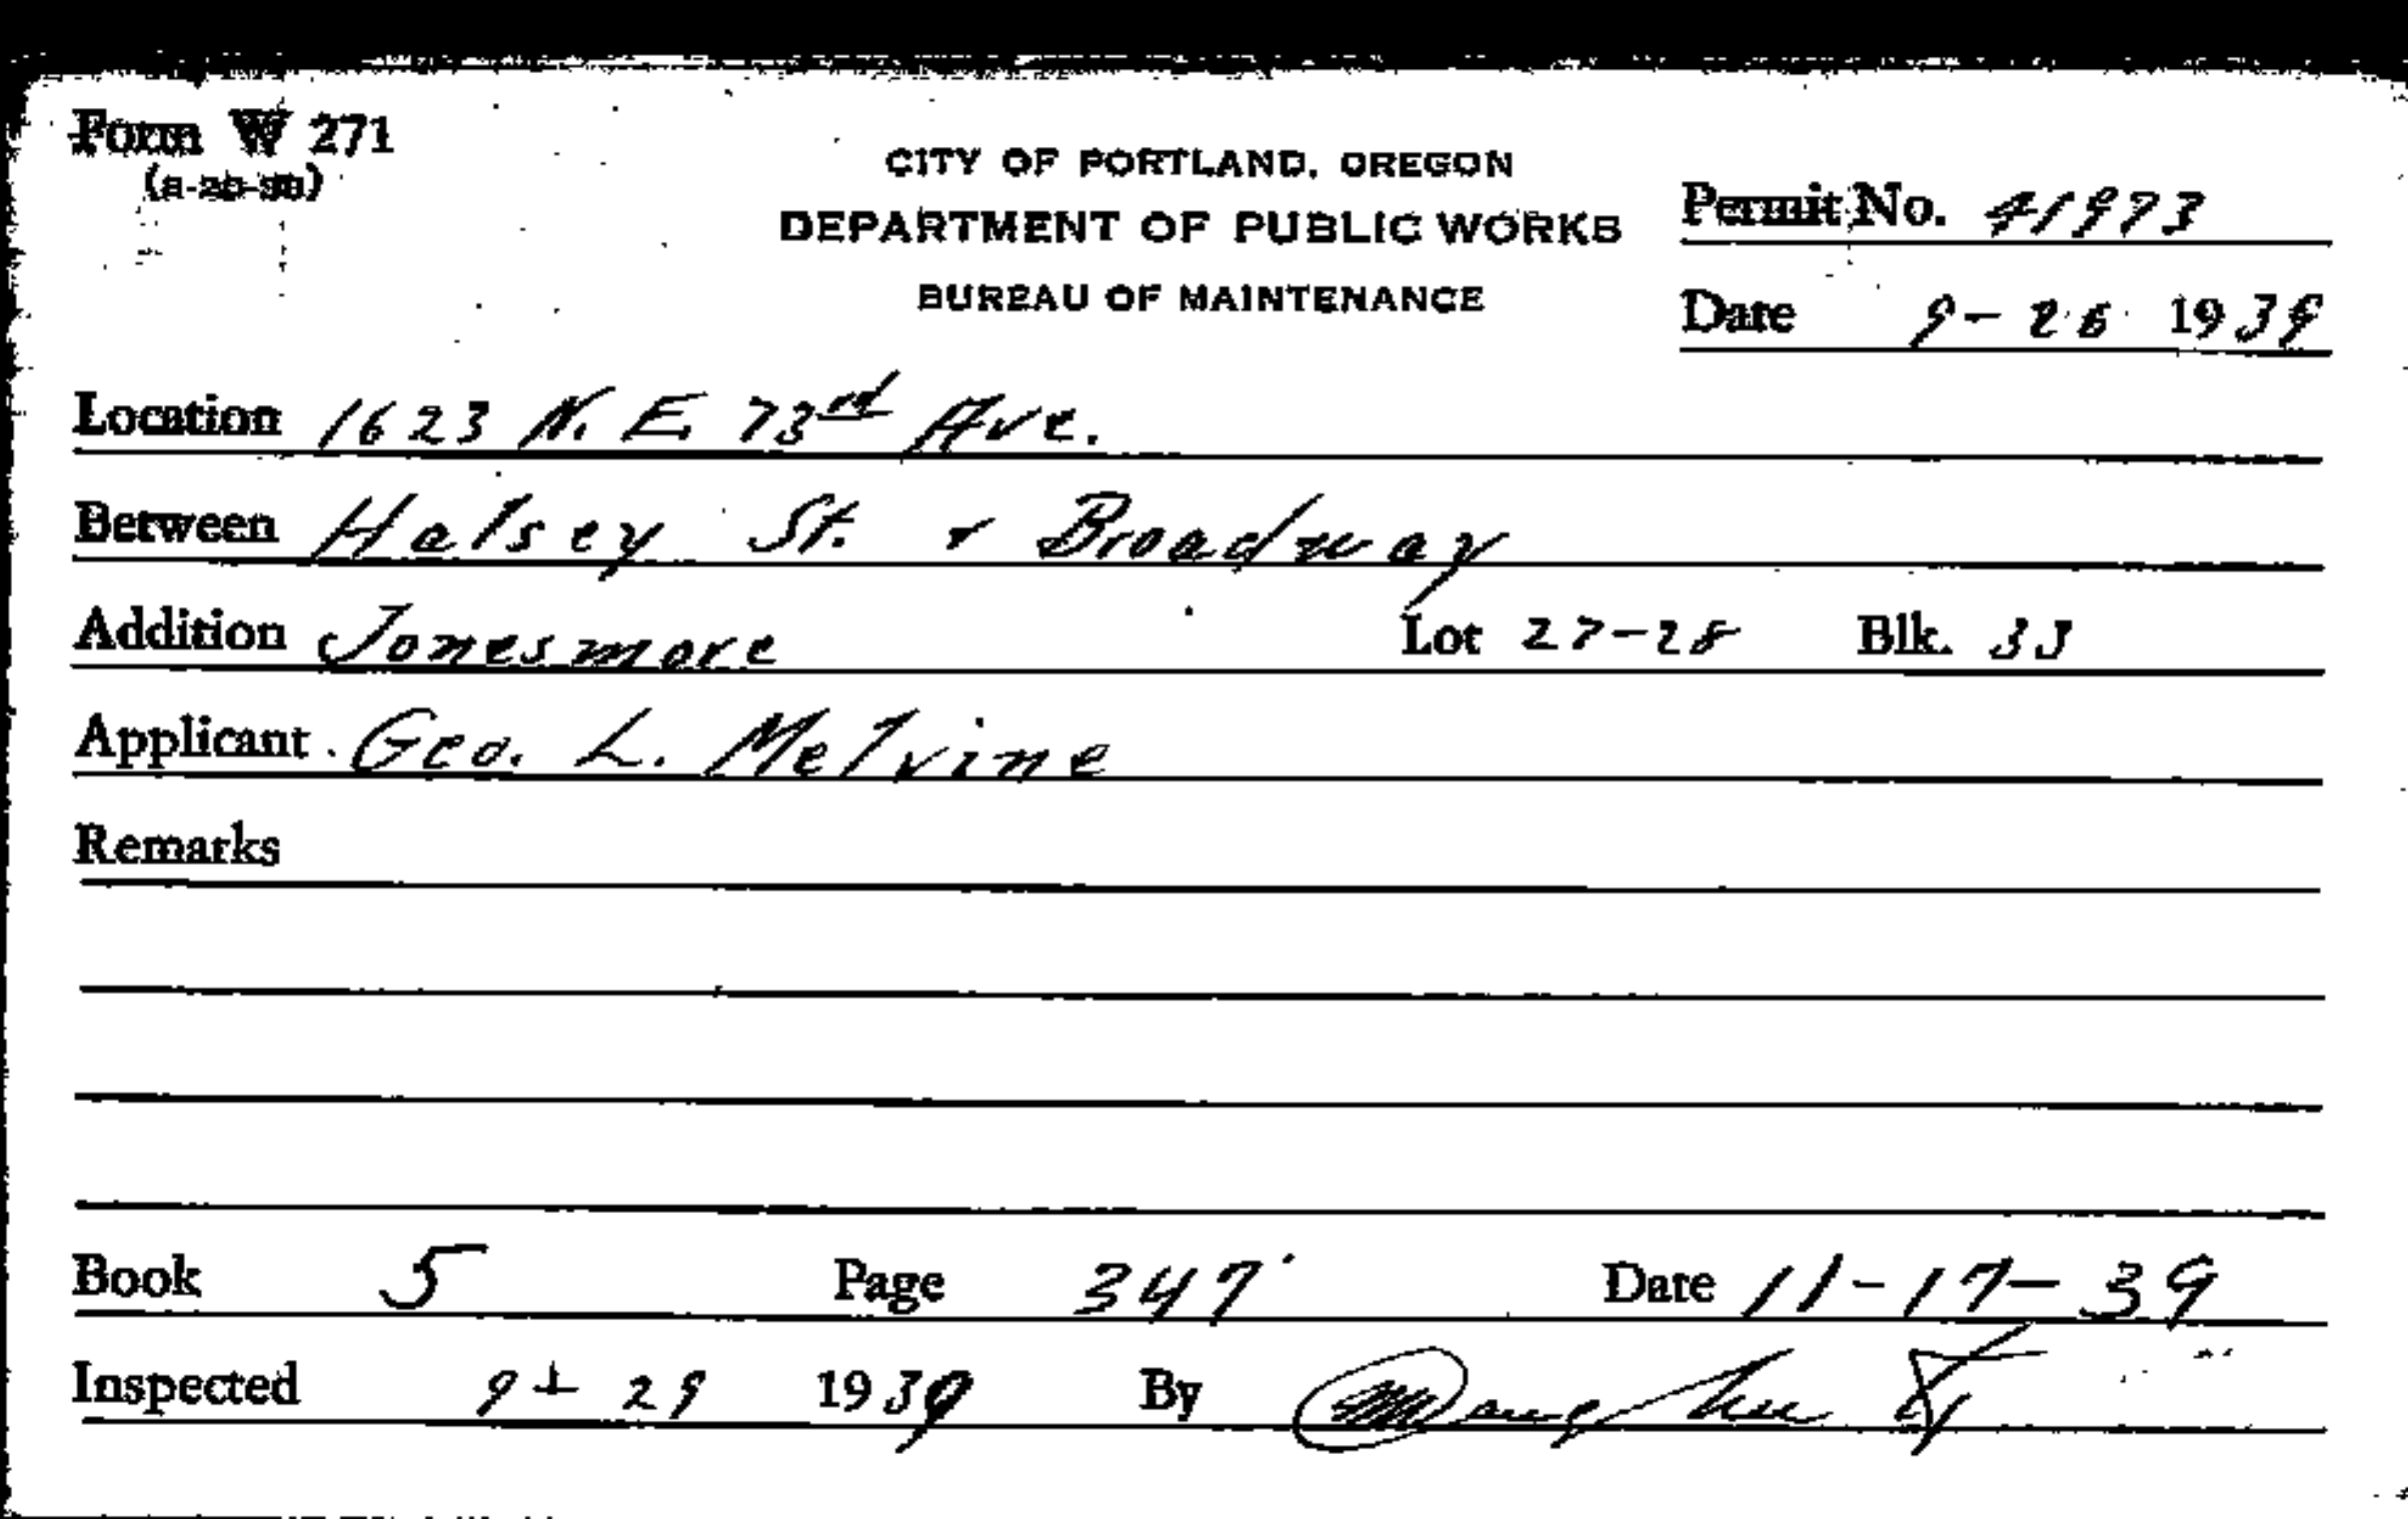 Form W 271
CITY OF PORTLAND, OREGON
DEPARTMENT OF PUBLIC WORKS
BUREAU OF MAINTENANCE
Permit No. 41973
Date 9-26 1939
Location 1623 N. E. 73rd Ave.
Between Halsey St. & Broadway
Addition Jonesmore Lot 27-28 Blk. 33
Applicant Geo. L. Melvine
Remarks
Book 5 Page 347 Date 11-17-39
Inspected 9-29 1939 By